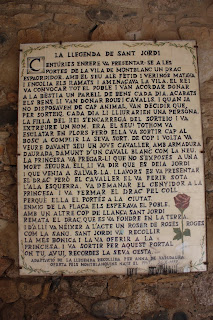 LA LLEGENDA DE SANT JORDI
CENTÚRIES ENRERE VA PRESENTAR-SE A LES
PORTES DE LA VILA DE MONTBLANC UN DRAC
ESPAORIDOR. AMB EL SEU ALÈ FÈTID I VERINÓS MATAVA
ENGOLIA ELS RAMATS I AMENAÇAVA LA VILA. EL REI
VA CONVOCAR TOT EL POBLE I VAN ACORDAR DONAR
A LA BÈSTIA UN PARELL DE BENS CADA DIA. ACABATS
ELS BENS LI VAN DONAR BOUS I CAVALLS. I QUAN JA
NO DISPOSAVEN DE CAP ANIMAL VAN DECIDIR QUE,
PER SORTEIG, CADA DIA LI LLIURARIEN UNA PERSONA.
LA FILLA DEL REI S'ENCARREGA DEL SORTEIG I VA
EXTREURE UN DIA EL SEU NOM. EL SEU
ESCLATAR EN PLORS PERÒ ELLA VA SORTIR CAP AL
BOSC A COMPLIR LA SEVA SORT. DE COP I VOLTA VA
VEURE DAVANT SEU UN JOVE CAVALLER AMB ARMADURA
DAURADA DAMUNT D'UN CAVALL BLANC COM LA NEU.
LA PRINCESA VA PREGAR-LI QUE NO S'EXPOSÉS A UNA
MORT SEGURA. ELL LI VA DIR QUE ES DEIA JORDI
I QUE VENIA A SALVAR-LA. LLAVORS ES VA PRESENTAR
EL DRAC PERÒ EL CAVALLER EL VA FERIR SOTA
L'ALA ESQUERRA. VA DEMANAR EL CENYIDOR A LA
PRINCESA I VA FERMAR EL DRAC PEL COLL
PERQUÈ ELLA EL PORTÉS A LA CIUTAT.
ENMIG DE LA PLAÇA ELS ESPERAVA EL POBLE.
AMB UN ALTRE COP DE LLANÇA SANT JORDI
REMATÀ EL DRAC QUE ES VA FONDRE EN LA TERRA.
D'ALLÍ VA NÉIXER A L'ACTE UN ROSER DE ROSES ROGES
COM LA SANG. SANT JORDI VA RECOLLIR
LA MÉS BONICA I LA VA OFERIR A LA
PRINCESA. I VA SORTIR PER AQUEST PORTAL
ON TU, AVUI, RECORDES LA SEVA GESTA.